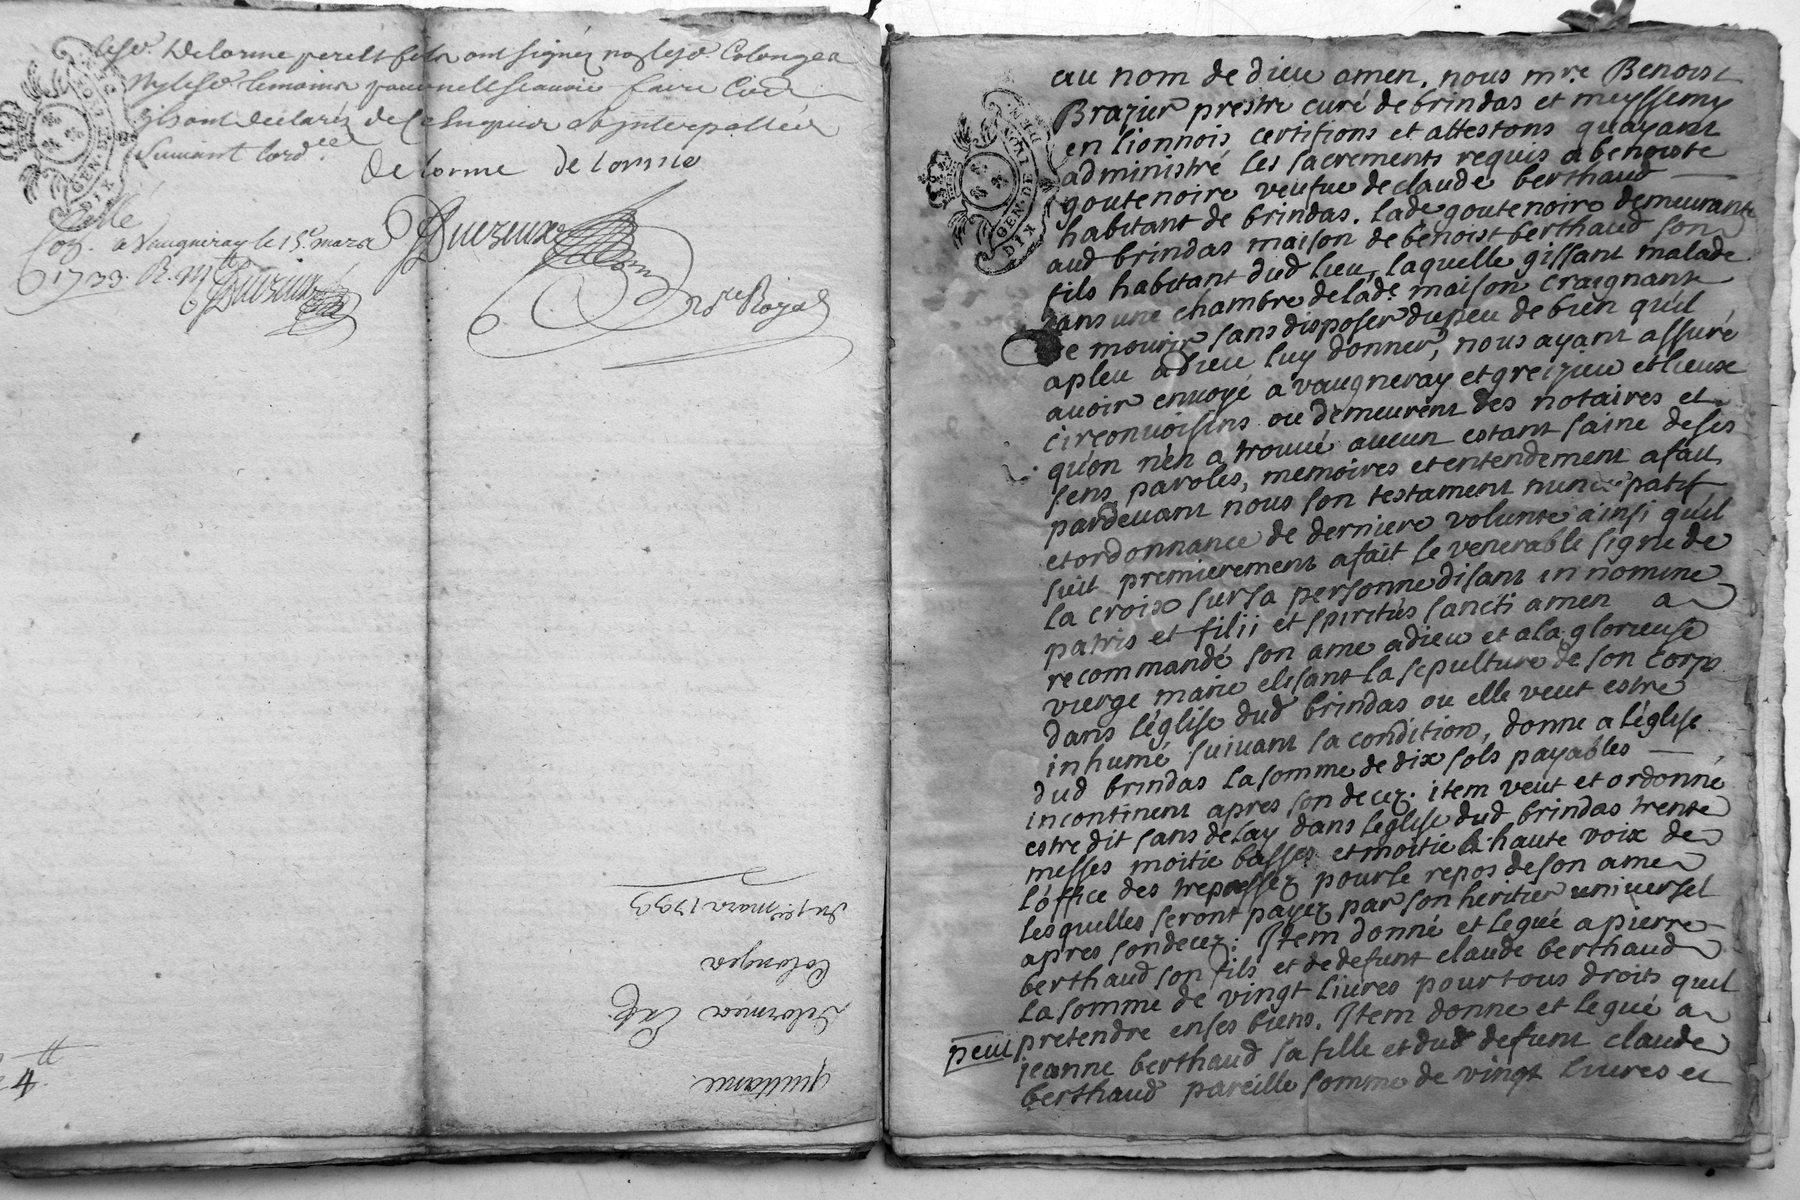 Delorme pere et fils ont signés non led. Colonges
ny lesd. temoins pour ne scavoir faire
ils ont declarés de ce enquis et interpellés
suivant lord.ce
de lorme de lorme
GEN. DE
DIX
à Vaugneray le 15e mars
1733. R.
Duezeux
No.re Royal
du 1er mars 1733
Colonges
Delormes
quittance
4
au nom de dieu amen, nous m.re Benoist
Brazier prestre curé de brindas et meyssemy
en lionnois certifions et attestons quayant
administré les sacrements requis a benoiste
goutenoire veufue de claude berthaud
habitant de brindas. lade goutenoire demeurante
aud brindas maison de benoist berthaud son
fils habitant dud lieu, laquelle gissant malade
dans une chambre de lade. maison craignant
de mourir sans disposer du peu de bien quil
a pleu a dieu luy donner, nous ayant assuré
auoir enuoyé a vaugneray et greizieu et lieux
circonuoisins ou demeurent des notaires et
quon nen a trouué aucun estant saine de ses
sens, paroles, memoires et entendement a fait
pardeuant nous son testament nuncupatif
et ordonnance de derniere volunté ainsi quil
suit premierement a fait le venerable signe de
la croix sur sa personne disant in nomine
patris et filii et spiritus sancti amen a
recommandé son ame a dieu et a la glorieuse
vierge marie elisant la sepulture de son corps
dans léglise dud brindas ou elle veut estre
inhumé suiuant sa condition, donne a léglise
dud brindas la somme de dix sols payables
incontinent apres son decez. item veut et ordonné
estre dit sans delay dans leglise dud brindas trente
messes moitié basses et moitié a haute voix de
loffice des trepassez pour le repos de son ame
lesquelles seront payez par son heritier universel
apres son decez: Item donné et legué a pierre
berthaud son fils et de defunt claude berthaud
la somme de vingt liures pour tous droits quil
peut pretendre en ses biens. Item donne et legué a
jeanne berthaud sa fille et dud defunt claude
berthaud pareille somme de vingt liures et
GEN. DE
DIX